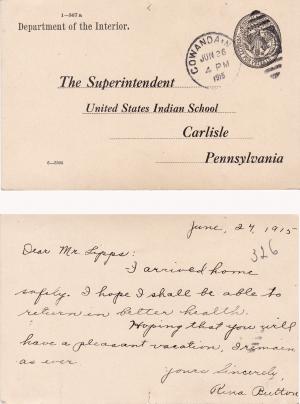 1—567 a
Department of the Interior.
GOWANDA
JUN 26
4 PM
1915
The Superintendent
United States Indian School
Carlisle
Pennsylvania
June, 27, 1915
326
Dear Mr. Lipps:
I arrived home
safely. I hope I shall be able to
return in better health.
Hoping that you will
have a pleasant vacation, I remain
as ever
Yours Sincerely,
Rena Button